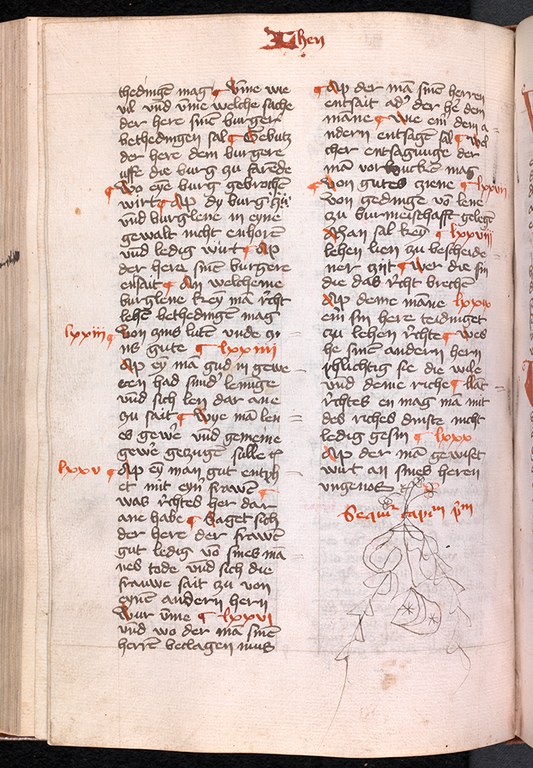 Lhen
thedingen mag ¶ Vm̄e wie
vil vnd vm̄e welche sache
der here sinen burger
bethedingen sal ¶ Gebutz
der here dem burgere
uffe die burg zu farēde
¶ Wo eyē burg gebrochen
wirt ¶ Ap dy burg
vnd burglene in eyne
gewalt nicht enhoret
vnd ledig wirt ¶ Ap
der here sinen burgere
entsait ¶ An welcheme
burglene krey mā r̄cht
lehen bethedingen mag
lxxiii ¶ Von zins luten vnde
ns gute ¶ lxxiiii
Ap eȳ mā gud in gewe
ren had
vnd sich len dar ane
zu sait ¶ Wye mā len
es gewe᷑ vnd gemeine
gewe᷑ gezuge sulle
lxxv ¶ Ap eȳ man gut entph
et mit eyn̄ frawen ¶
was r̄chtes her dar
ane habe ¶ Saget sich
der here der frawen
gut ledig vō sines mā
nes tode vnd sich die
frauwe sait zu von
eynē andern hern
Wur vm̄e ¶ lxxvi
vnd wo der mā sinen
herren beclagen mus
¶ Ap der mā sinen herren
entsait ad᷑ der he᷑ dem
manne ¶ Wie ein dem a
ndern entsagen sal ¶ Wel
cher entsagunge der
man vorsucken mag
¶ Von gutes ziene ¶ lxxvii
Von gedinge vō lene
zu burmeischafft gelege᷑
Wan sal key ¶ lxxviii
lehen lien zu bescheide
ner zyt ¶ Wer die sin
die das r̄cht brechen
Ap deme māne lxxix
ein sin here teidinget
zu lehen r̄chte ¶ Wes
he sinen andern hern
pflichtig sie die wile
vnd deme riche ¶ Nat
r̄chtes en mag mā mit
des riches dinste nicht
ledig gesin ¶ lxxx
Ap der mā gewist
wirt an sines heren
vngenos
Sequit᷑ capm̄ pm̄